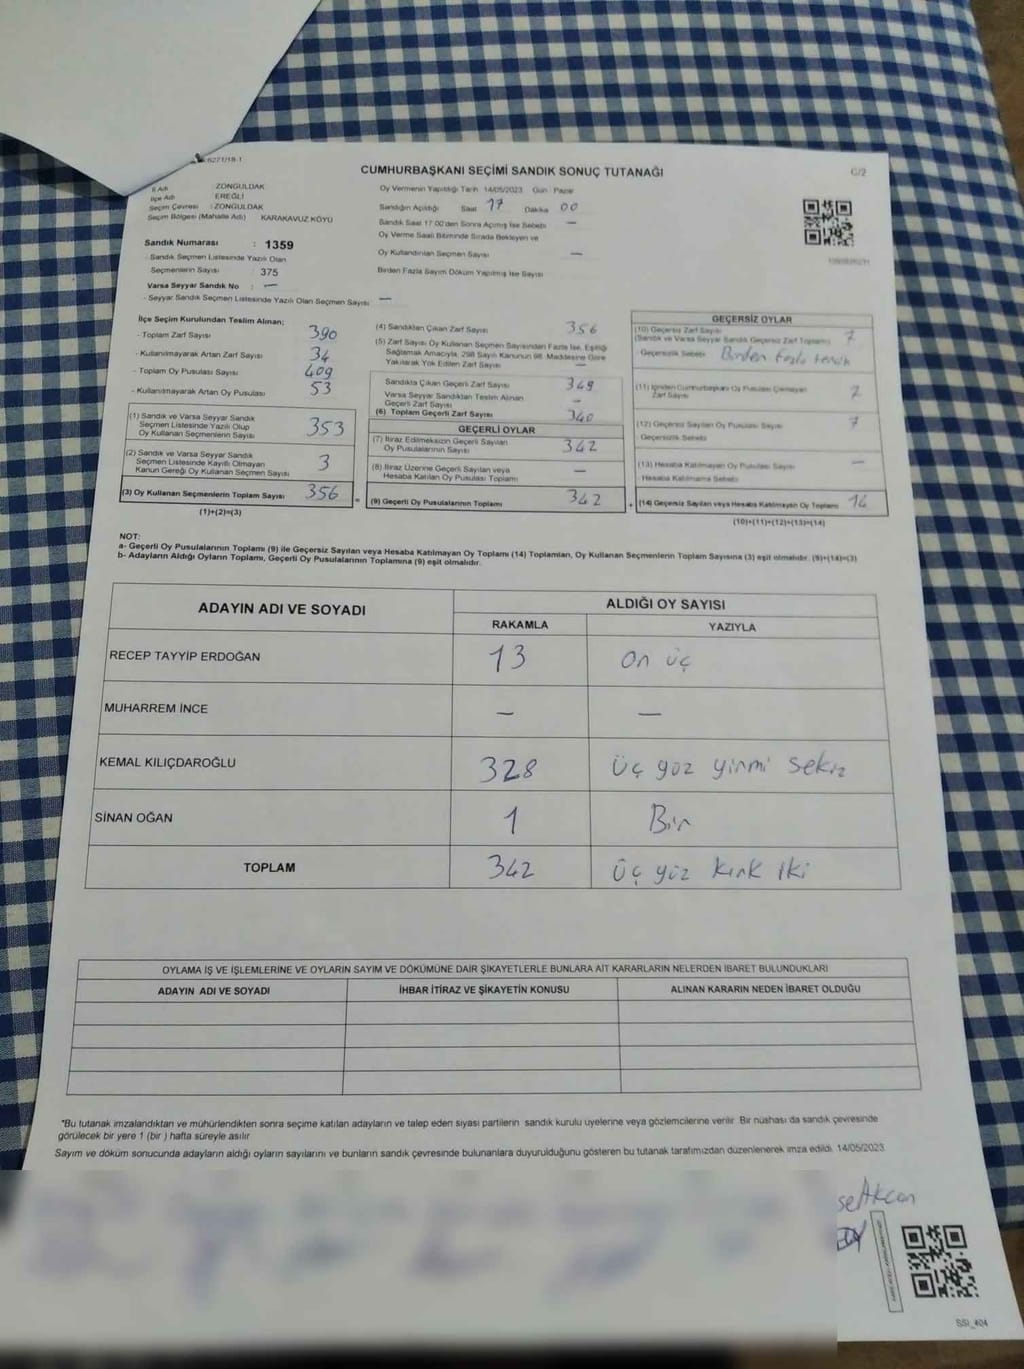 6271/18-1
CUMHURBAŞKANI SEÇİMİ SANDIK SONUÇ TUTANAĞI
C/2
İl Adı : ZONGULDAK
İlçe Adı : EREĞLİ
Seçim Çevresi : ZONGULDAK
Seçim Bölgesi (Mahalle Adı) KARAKAVUZ KÖYÜ
Sandık Numarası : 1359
Sandık Seçmen Listesinde Yazılı Olan
Seçmenlerin Sayısı : 375
Varsa Seyyar Sandık No : —
- Seyyar Sandık Seçmen Listesinde Yazılı Olan Seçmen Sayısı —
Oy Vermenin Yapıldığı Tarih 14/05/2023 Gün Pazar
Sandığın Açıldığı Saat 17 Dakika 00
Sandık Saat 17:00'den Sonra Açılmış İse Sebebi —
Oy Verme Saati Bitiminde Sırada Bekleyen ve
Oy Kullandırılan Seçmen Sayısı —
Birden Fazla Sayım Döküm Yapılmış İse Sayısı
İlçe Seçim Kurulundan Teslim Alınan;
- Toplam Zarf Sayısı 390
- Kullanılmayarak Artan Zarf Sayısı 34
- Toplam Oy Pusulası Sayısı 409
- Kullanılmayarak Artan Oy Pusulası 53
(1) Sandık ve Varsa Seyyar Sandık
Seçmen Listesinde Yazılı Olup
Oy Kullanan Seçmenlerin Sayısı 353
(2) Sandık ve Varsa Seyyar Sandık
Seçmen Listesinde Kayıtlı Olmayan
Kanun Gereği Oy Kullanan Seçmen Sayısı 3
(3) Oy Kullanan Seçmenlerin Toplam Sayısı 356 =
(1)+(2)=(3)
(4) Sandıktan Çıkan Zarf Sayısı 356
(5) Zarf Sayısı Oy Kullanan Seçmen Sayısından Fazla İse, Eşitliği
Sağlamak Amacıyla, 298 Sayılı Kanunun 98. Maddesine Göre
Yakılarak Yok Edilen Zarf Sayısı —
Sandıkta Çıkan Geçerli Zarf Sayısı 349
Varsa Seyyar Sandıktan Teslim Alınan
Geçerli Zarf Sayısı —
(6) Toplam Geçerli Zarf Sayısı
GEÇERLİ OYLAR
(7) İtiraz Edilmeksizin Geçerli Sayılan
Oy Pusulalarının Sayısı 342
(8) İtiraz Üzerine Geçerli Sayılan veya
Hesaba Katılan Oy Pusulası Toplamı —
(9) Geçerli Oy Pusulalarının Toplamı 342 +
GEÇERSİZ OYLAR
(10) Geçersiz Zarf Sayısı
(Sandık ve Varsa Seyyar Sandık Geçersiz Zarf Toplamı) 7
Geçersizlik Sebebi Birden fazla tercih
(11) İçinden Cumhurbaşkanı Oy Pusulası Çıkmayan
Zarf Sayısı
(12) Geçersiz Sayılan Oy Pusulası Sayısı 7
Geçersizlik Sebebi
(13) Hesaba Katılmayan Oy Pusulası Sayısı —
Hesaba Katılmama Sebebi
(14) Geçersiz Sayılan veya Hesaba Katılmayan Oy Toplamı 14
(10)+(11)+(12)+(13)=(14)
NOT:
a- Geçerli Oy Pusulalarının Toplamı (9) ile Geçersiz Sayılan veya Hesaba Katılmayan Oy Toplamı (14) Toplamları, Oy Kullanan Seçmenlerin Toplam Sayısına (3) eşit olmalıdır. (9)+(14)=(3)
b- Adayların Aldığı Oyların Toplamı, Geçerli Oy Pusulalarının Toplamına (9) eşit olmalıdır.
ADAYIN ADI VE SOYADI
ALDIĞI OY SAYISI
RAKAMLA YAZIYLA
RECEP TAYYİP ERDOĞAN 13 On üç
MUHARREM İNCE — —
KEMAL KILIÇDAROĞLU 328 Üç yüz yirmi sekiz
SİNAN OĞAN 1 Bir
TOPLAM 342 Üç yüz kırk iki
OYLAMA İŞ VE İŞLEMLERİNE VE OYLARIN SAYIM VE DÖKÜMÜNE DAİR ŞİKAYETLERLE BUNLARA AİT KARARLARIN NELERDEN İBARET BULUNDUKLARI
ADAYIN ADI VE SOYADI İHBAR İTİRAZ VE ŞİKAYETİN KONUSU ALINAN KARARIN NEDEN İBARET OLDUĞU
*Bu tutanak imzalandıktan ve mühürlendikten sonra seçime katılan adayların ve talep eden siyasi partilerin sandık kurulu üyelerine veya gözlemcilerine verilir. Bir nüshası da sandık çevresinde
görülecek bir yere 1 (bir ) hafta süreyle asılır
Sayım ve döküm sonucunda adayların aldığı oyların sayılarını ve bunların sandık çevresinde bulunanlara duyurulduğunu gösteren bu tutanak tarafımızdan düzenlenerek imza edildi. 14/05/2023
se Akcan
SSI_404